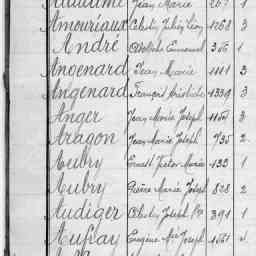 Jean Marie 267 1
Amouriaux Célestin Julien Léon 1268 3
André Adolphe Emmanuel 356 1
Angenard Jean Marie 1111 3
Angenard François Aristide 1339 3
Anger Jean Marie Joseph 3
Aragon Jean Marie Joseph 735 2
Aubry Ernest Victor Marie 133 1
Aubry Pierre Marie Joseph 828 2
Audiger Célestin Joseph 391 1
Aufray Eugène Mie Joseph